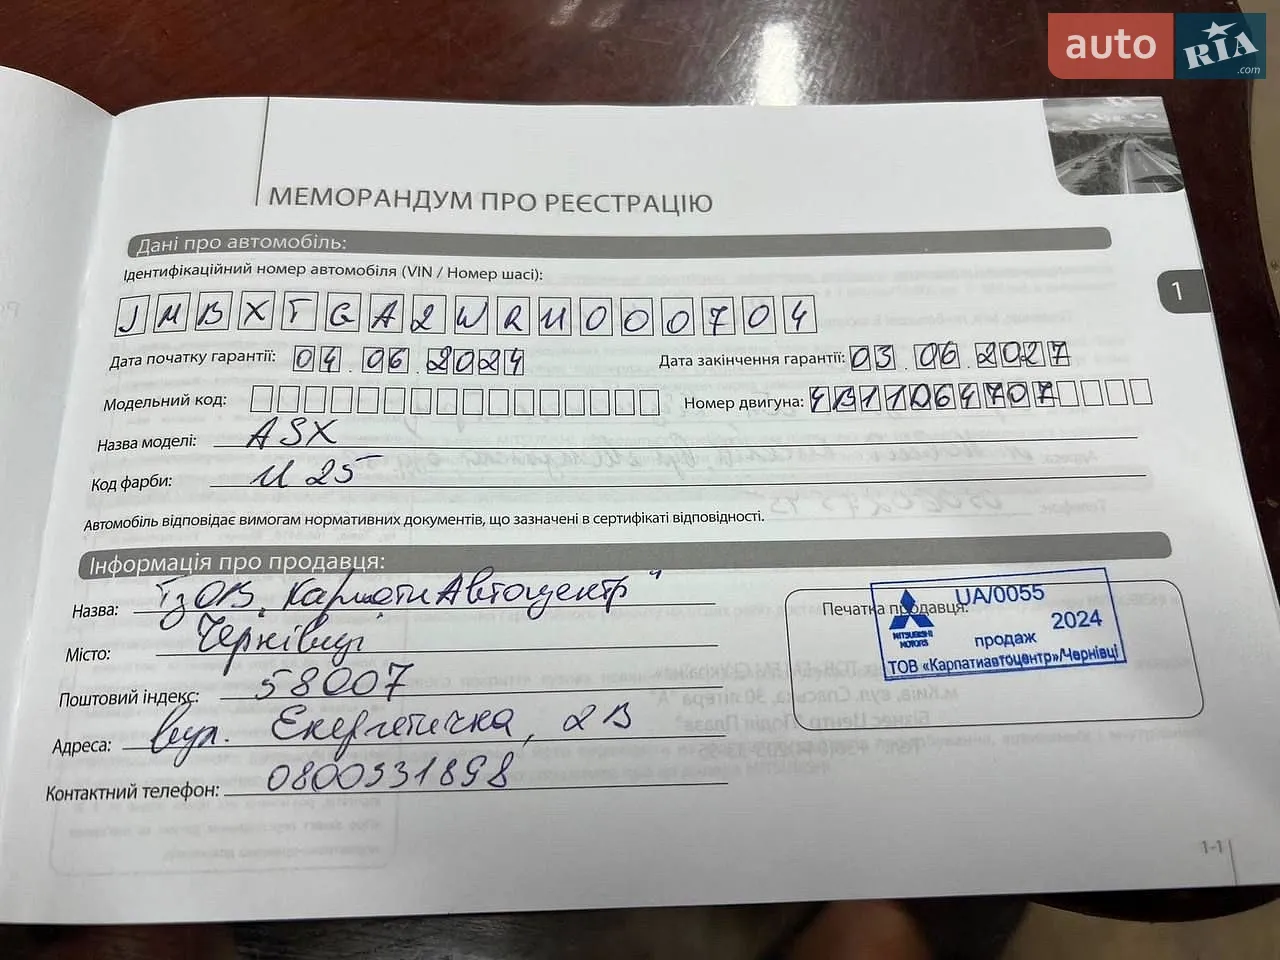 auto RIA .com
МЕМОРАНДУМ ПРО РЕЄСТРАЦІЮ
Дані про автомобіль:
Ідентифікаційний номер автомобіля (VIN / Номер шасі):
JMBXTGA2WRU000704
1
Дата початку гарантії: 04.06.2024 Дата закінчення гарантії: 03.06.2027
Модельний код: Номер двигуна: 4B11064707
Назва моделі: ASX
Код фарби: U 25
Автомобіль відповідає вимогам нормативних документів, що зазначені в сертифікаті відповідності.
Інформація про продавця:
Назва: ТзОВ "КарпатиАвтоцентр"
Місто: Чернівці
Поштовий індекс: 58007
Адреса: вул. Енергетична, 2В
Контактний телефон: 0800331898
Печатка продавця:
UA/0055
MITSUBISHI MOTORS
продаж 2024
ТОВ «Карпатиавтоцентр»/Чернівці
1-1